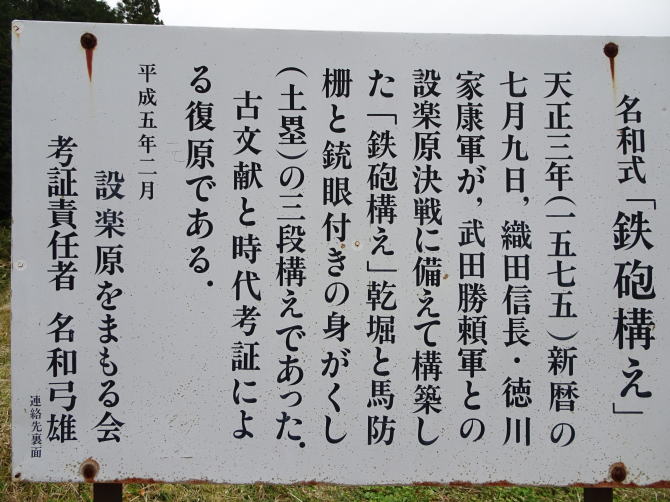 名和式「鉄砲構え」
天正三年(一五七五)新暦の
七月九日,織田信長・徳川
家康軍が,武田勝頼軍との
設楽原決戦に備えて構築し
た「鉄砲構え」乾堀と馬防
柵と銃眼付きの身がくし
(土塁)の三段構えであった.
古文献と時代考証によ
る復原である.
平成五年二月
設楽原をまもる会
考証責任者 名和弓雄
連絡先裏面